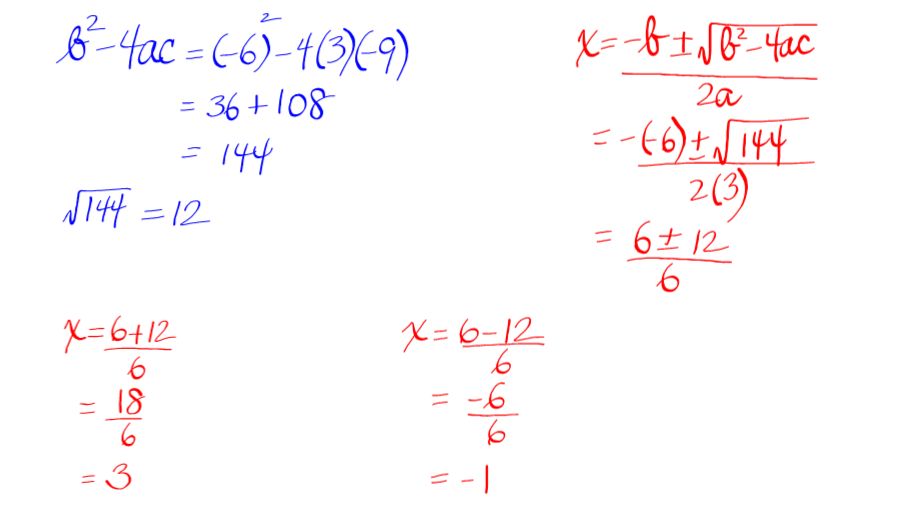 b² - 4ac = (-6)² - 4(3)(-9)
= 36 + 108
= 144
√144 = 12
x = -b ± √b² - 4ac / 2a
= -(-6) ± √144 / 2(3)
= 6 ± 12 / 6
x = 6 + 12 / 6
= 18 / 6
= 3
x = 6 - 12 / 6
= -6 / 6
= -1